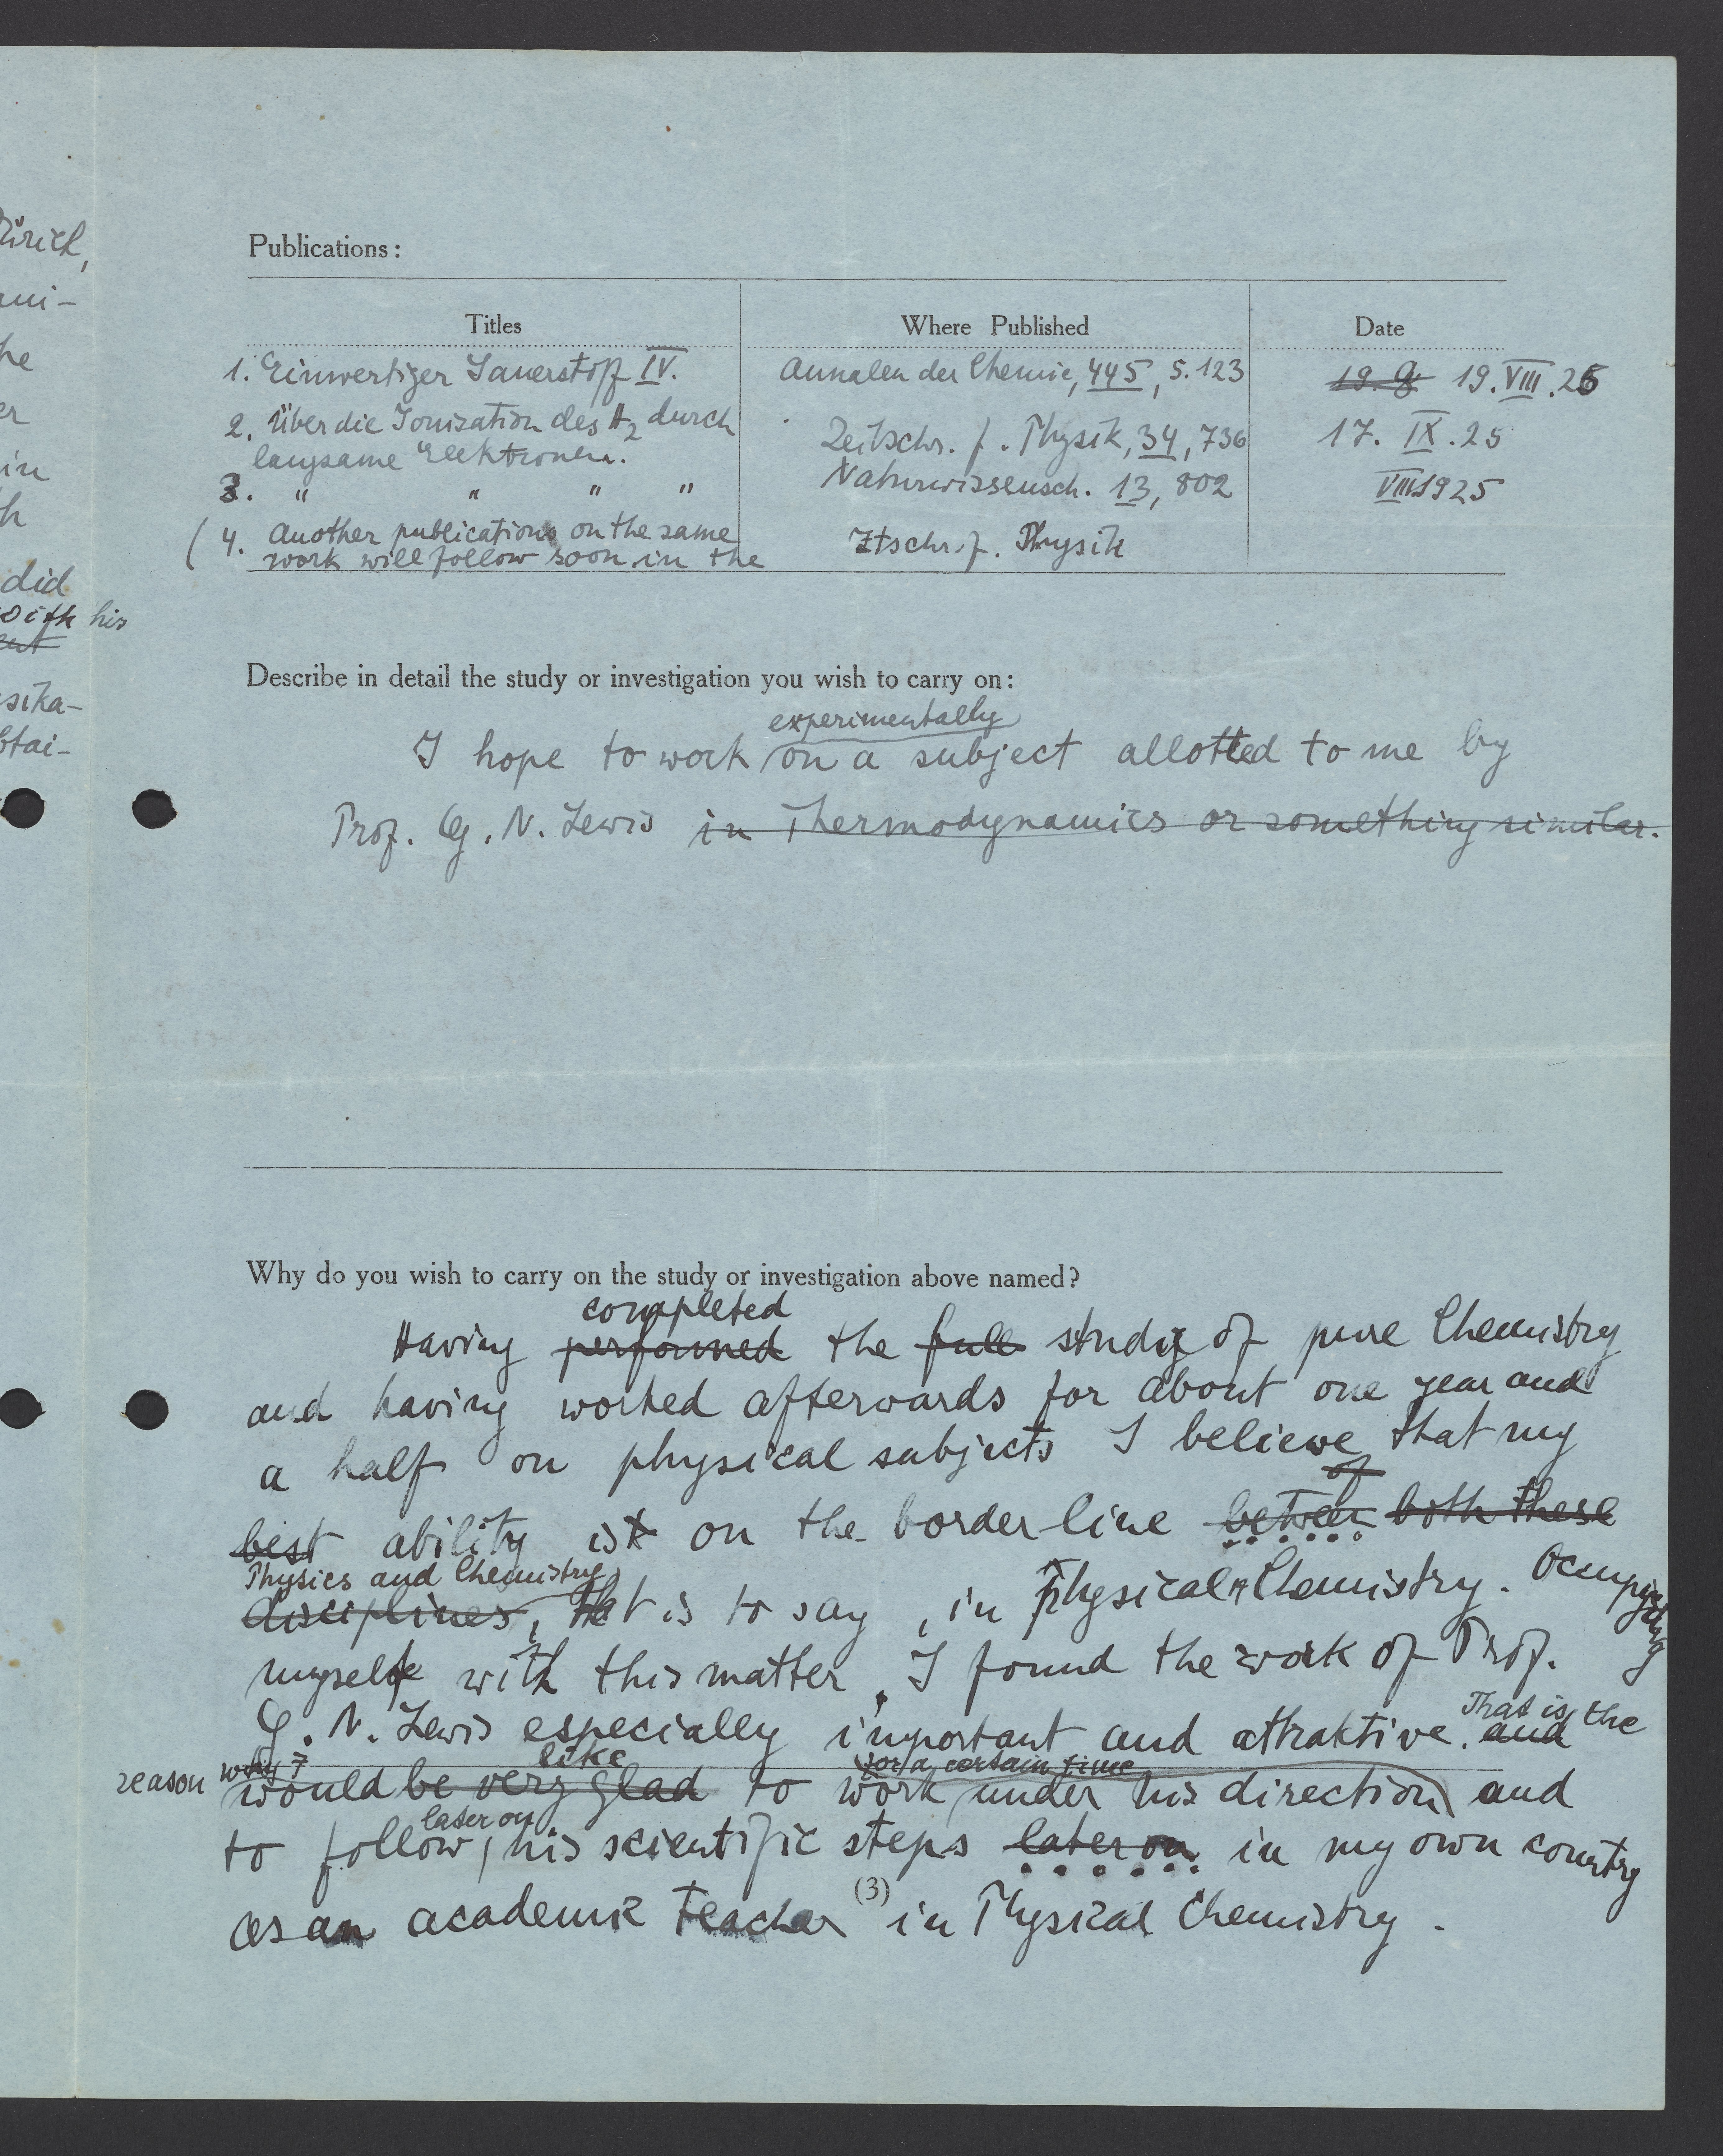 ürich,
ni-
he
er
in
h
did
with his
sika-
btai-
Publications:
Titles Where Published Date
1. Einwertiger Sauerstoff IV. Annalen der Chemie, 445, S. 123 19. 8 19. VIII. 25
2. Über die Ionisation des H2 durch Zeitschr. f. Physik, 34, 736 17. IX. 25
langsame Elektronen.
3. " " " " Naturwissensch. 13, 802 VIII 1925
(4. Another publications on the same Ztschr. f. Physik
work will follow soon in the
Describe in detail the study or investigation you wish to carry on:
experimentally
I hope to work on a subject allotted to me by
Prof. G. N. Lewis in Thermodynamics or something similar.
Why do you wish to carry on the study or investigation above named?
completed
Having performed the full study of pure Chemistry
and having worked afterwards for about one year and
a half on physical subjects I believe that my
of
best ability is on the border-line between both these
Physics and Chemistry
disciplines, that is to say, in Physical Chemistry. Occupying
myself with this matter, I found the work of Prof.
That is the
G. N. Lewis especially important and attraktive. and
reason why I like for a certain time
would be very glad to work under his direction and
later on
to follow his scientific steps later on in my own country
(3)
as an academic teacher in Physical Chemistry.